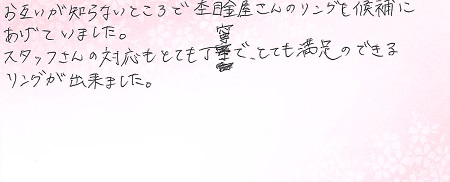 お互いが知らないところで杢目金屋さんのリングを候補に
あげていました。
スタッフさんの対応もとても丁寧で、とても満足のできる
リングが出来ました。